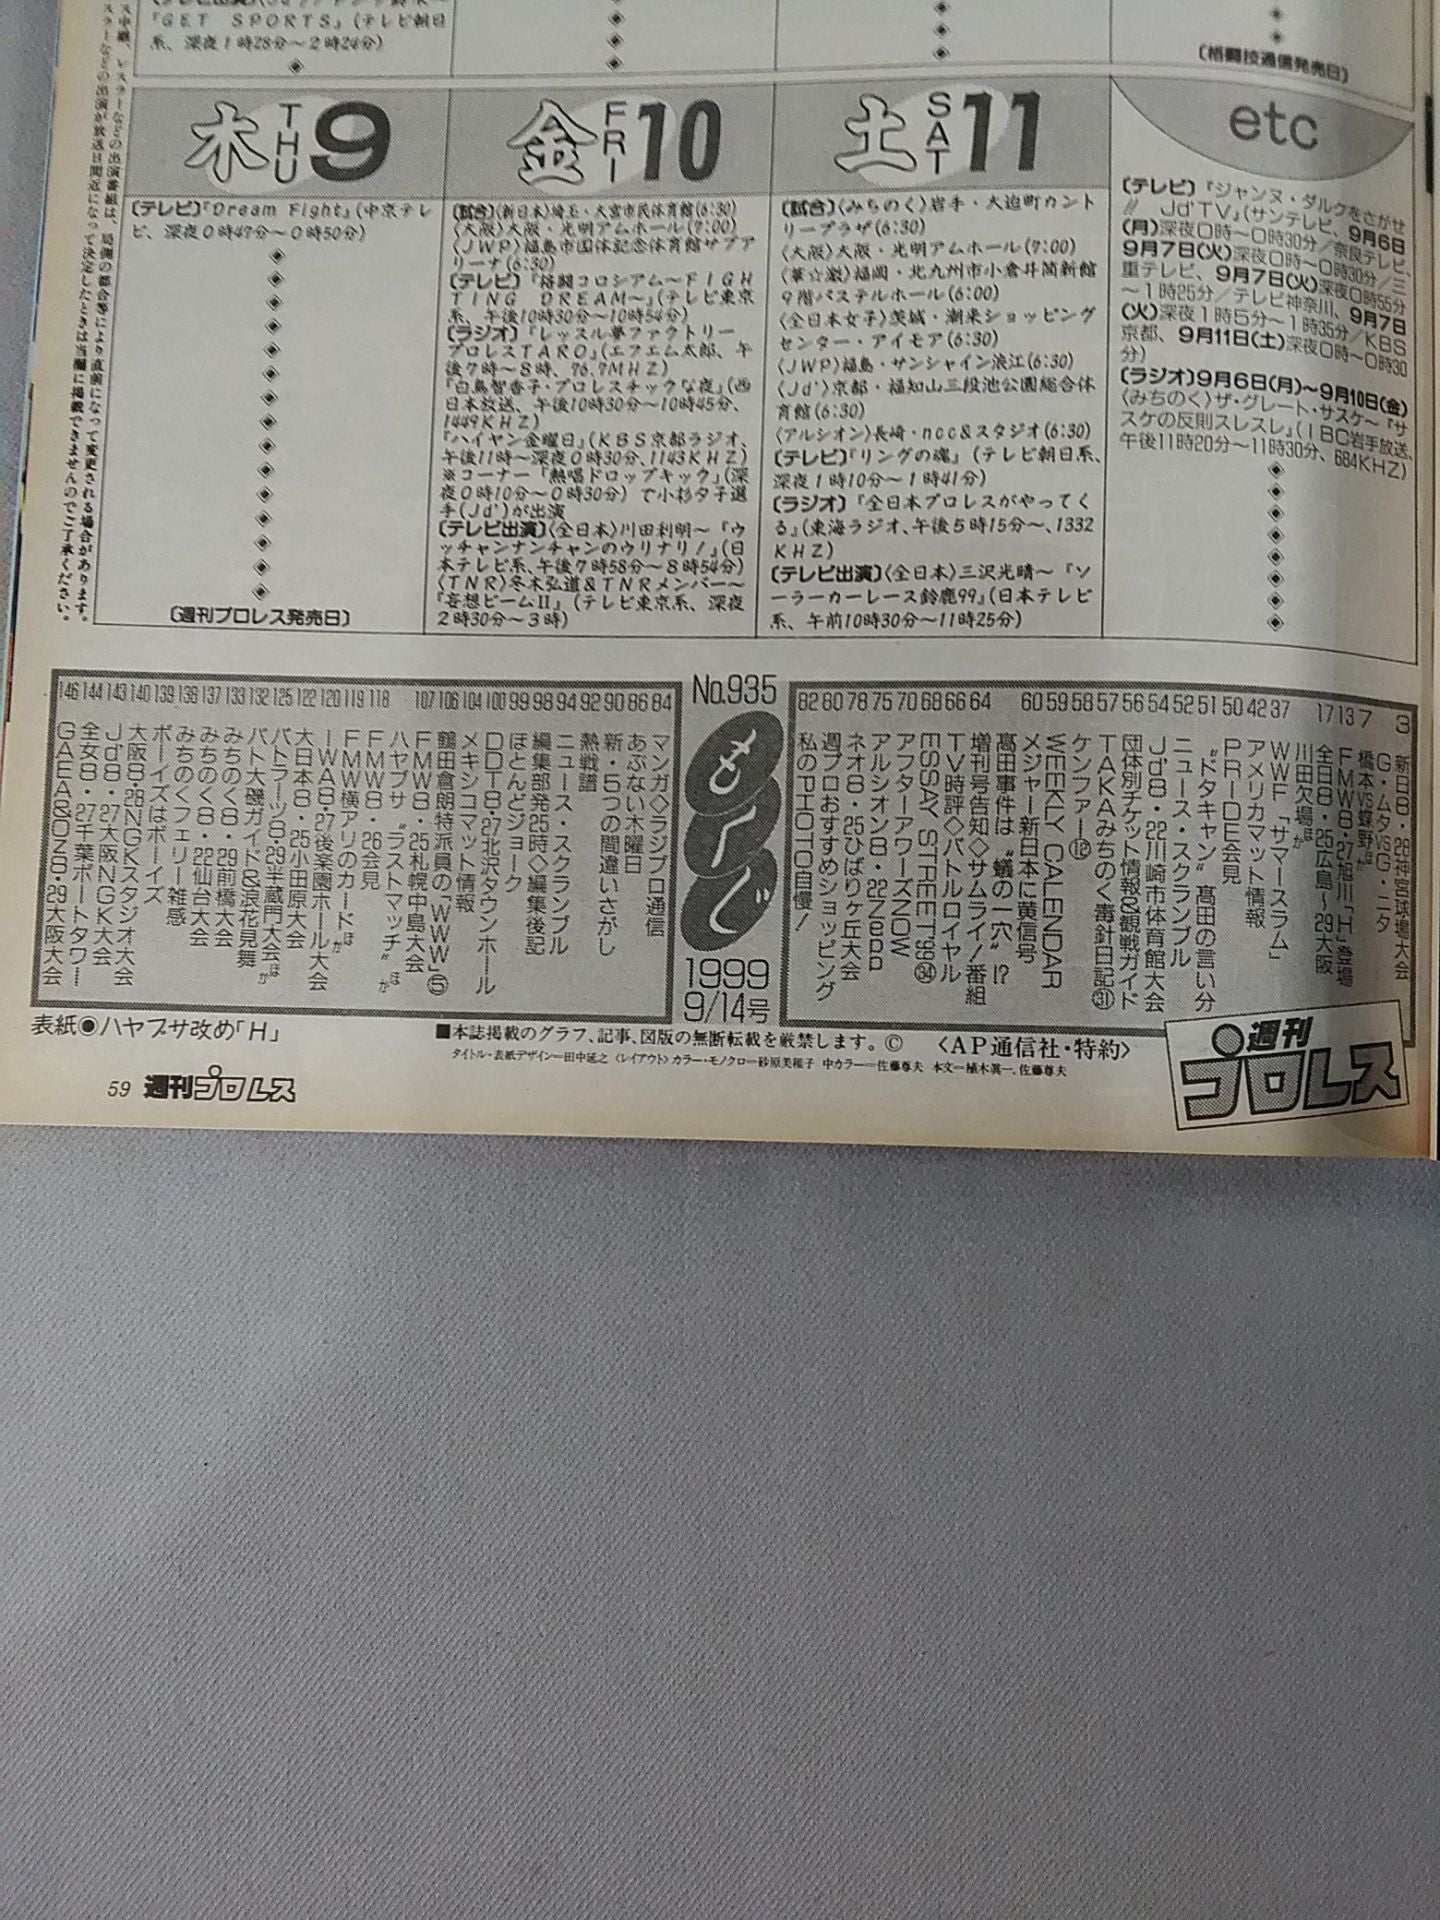 『GET SPORTS』(テレビ朝日
系、深夜1時28分~2時24分)
(格闘技通信発売日)
ス中継、レスラーなどの出演番組は、局側の都合等により直前になって変更される場合があります。
スラーなどの出演が放送日間近になって決定したときは当欄に掲載できませんのでご了承ください。
木 THU 9
(テレビ)『Dream Fight』(中京テレ
ビ、深夜0時47分~0時50分)
(週刊プロレス発売日)
金 FRI 10
(試合)〈新日本〉埼玉・大宮市民体育館(6:30)
〈大阪〉大阪・光明アムホール(7:00)
〈JWP〉福島市国体記念体育館サブア
リーナ(6:30)
(テレビ)『格闘コロシアム~FIGH
TING DREAM~』(テレビ東京
系、午後10時30分~10時54分)
(ラジオ)『レッスル夢ファクトリー
プロレスTARO』(エフエム太郎、午
後7時~8時、76.7MHZ)
『白鳥智香子・プロレスチックな夜』(西
日本放送、午後10時30分~10時45分、
1449KHZ)
『ハイヤン金曜日』(KBS京都ラジオ、
午後11時~深夜0時30分、1143KHZ)
※コーナー「熱唱ドロップキック」(深
夜0時10分~0時30分)で小杉夕子選
手(Jd')が出演
(テレビ出演)〈全日本〉川田利明~『ウ
ッチャンナンチャンのウリナリ!』(日
本テレビ系、午後7時58分~8時54分)
〈TNR〉冬木弘道&TNRメンバー~
『妄想ビームII』(テレビ東京系、深夜
2時30分~3時)
土 SAT 11
(試合)〈みちのく〉岩手・大迫町カント
リープラザ(6:30)
〈大阪〉大阪・光明アムホール(7:00)
〈華☆激〉福岡・北九州市小倉井筒新館
9階パステルホール(6:00)
〈全日本女子〉茨城・潮来ショッピング
センター・アイモア(6:30)
〈JWP〉福島・サンシャイン浪江(6:30)
〈Jd'〉京都・福知山三段池公園総合体
育館(6:30)
〈アルシオン〉長崎・ncc&スタジオ(6:30)
(テレビ)『リングの魂』(テレビ朝日系、
深夜1時10分~1時41分)
(ラジオ)『全日本プロレスがやってく
る』(東海ラジオ、午後5時15分~、1332
KHZ)
(テレビ出演)〈全日本〉三沢光晴~『ソ
ーラーカーレース鈴鹿99』(日本テレビ
系、午前10時30分~11時25分)
etc
(テレビ)『ジャンヌ・ダルクをさがせ
!! Jd'TV』(サンテレビ、9月6日
(月)深夜0時~0時30分/奈良テレビ、
9月7日(火)深夜0時~0時30分/三
重テレビ、9月7日(火)深夜0時55分
~1時25分/テレビ神奈川、9月7日
(火)深夜1時5分~1時35分/KBS
京都、9月11日(土)深夜0時~0時30
分)
(ラジオ)9月6日(月)~9月10日(金)
〈みちのく〉ザ・グレート・サスケ~『サ
スケの反則スレスレ』(IBC岩手放送、
午後11時20分~11時30分、684KHZ)
No.935
もくじ
1999
9/14号
3 新日8・28神宮球場大会
G・ムタvsG・ニタ
7 橋本vs蝶野ほか
13 FMW8・27旭川「H」登場
17 全日8・25広島~29大阪
川田欠場ほか
37 WWF「サマースラム」
42 アメリカマット情報
50 PRIDE会見
51 “ドタキャン”高田の言い分
52 ニュース・スクランブル
54 Jd'8・22川崎市体育館大会
56 団体別チケット情報&観戦ガイド
57 TAKAみちのく毒針日記㉛
58 ケンファー⑫
59 WEEKLY CALENDAR
60 メジャー新日本に黄信号
高田事件は“蟻の一穴”!?
64 増刊号告知◇サムライ!番組
66 TV時評◇バトルロイヤル
68 ESSAY STREET'99㉞
70 アフターアワーズNOW
75 アルシオン8・22Neaa
78 ネオ8・25ひばりヶ丘大会
80 週プロおすすめショッピング
82 私のPHOTO自慢!
84 マンガ◇ラジプロ通信
86 あぶない木曜日
90 新・5つの間違いさがし
92 熱戦譜
94 ニュース・スクランブル
98 編集部発25時◇編集後記
99 ほとんどジョーク
100 DDT8・27北沢タウンホール
104 メキシコマット情報
106 鶴田倉朗特派員の「WWW」⑤
107 FMW8・25札幌中島大会
ハヤブサ“ラストマッチ”ほか
118 FMW8・26会見
119 FMW横アリのカードほか
120 IWA8・27後楽園ホール大会
122 大日本8・25小田原大会
125 バトラーツ8・29半蔵門大会ほか
132 バト大磯ガイド&浪花見舞
133 みちのく8・29前橋大会
137 みちのく8・22仙台大会
138 みちのくフェリー雑感
139 ボーイズはボーイズ
140 大阪8・28NGKスタジオ大会
143 Jd'8・27大阪NGK大会
144 全女8・27千葉ポートタワー
146 GAEA&OZ8・29大阪大会
表紙◉ハヤブサ改め「H」
■本誌掲載のグラフ、記事、図版の無断転載を厳禁します。© 〈AP通信社・特約〉
タイトル・表紙デザイン=田中延之 〈レイアウト〉カラー・モノクロ=砂原美稚子 中カラー=佐藤尊夫 本文=植木眞一、佐藤尊夫
59 週刊プロレス
週刊
プロレス